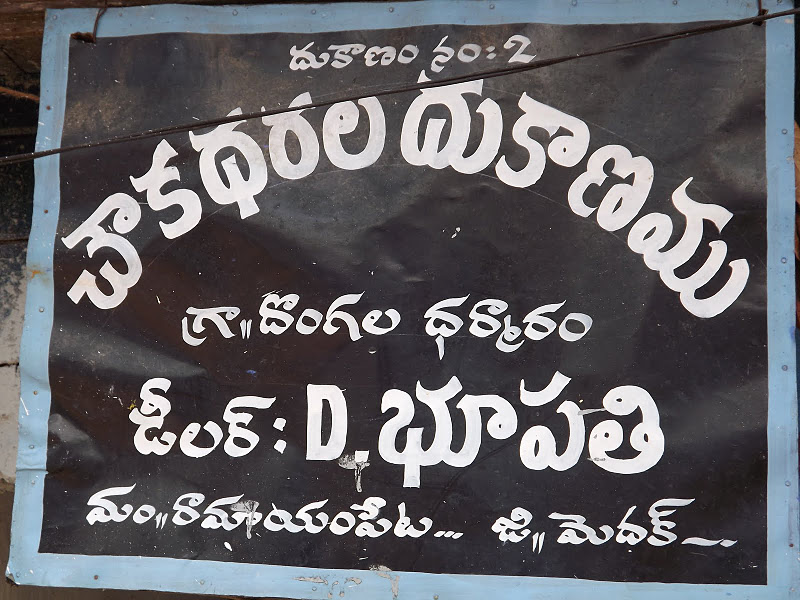 దుకాణం నం: 2
చౌక ధరల దుకాణము
గ్రా॥ దొంగల ధర్మారం
డీలర్ : D. భూపతి
మం॥ రామాయంపేట... జి॥ మెదక్ ...